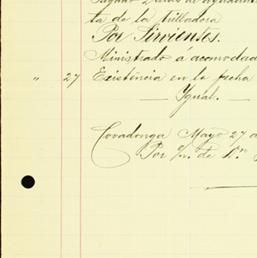 ta de la trilladora
Por Sirvientes.
Ministrado á acomodada
" 27 Existencia en la fecha
— Igual. —
Covadonga Mayo 27 d
Por